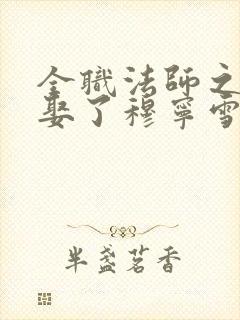 全職法師之
娶了穆寧雪
半盏茗香